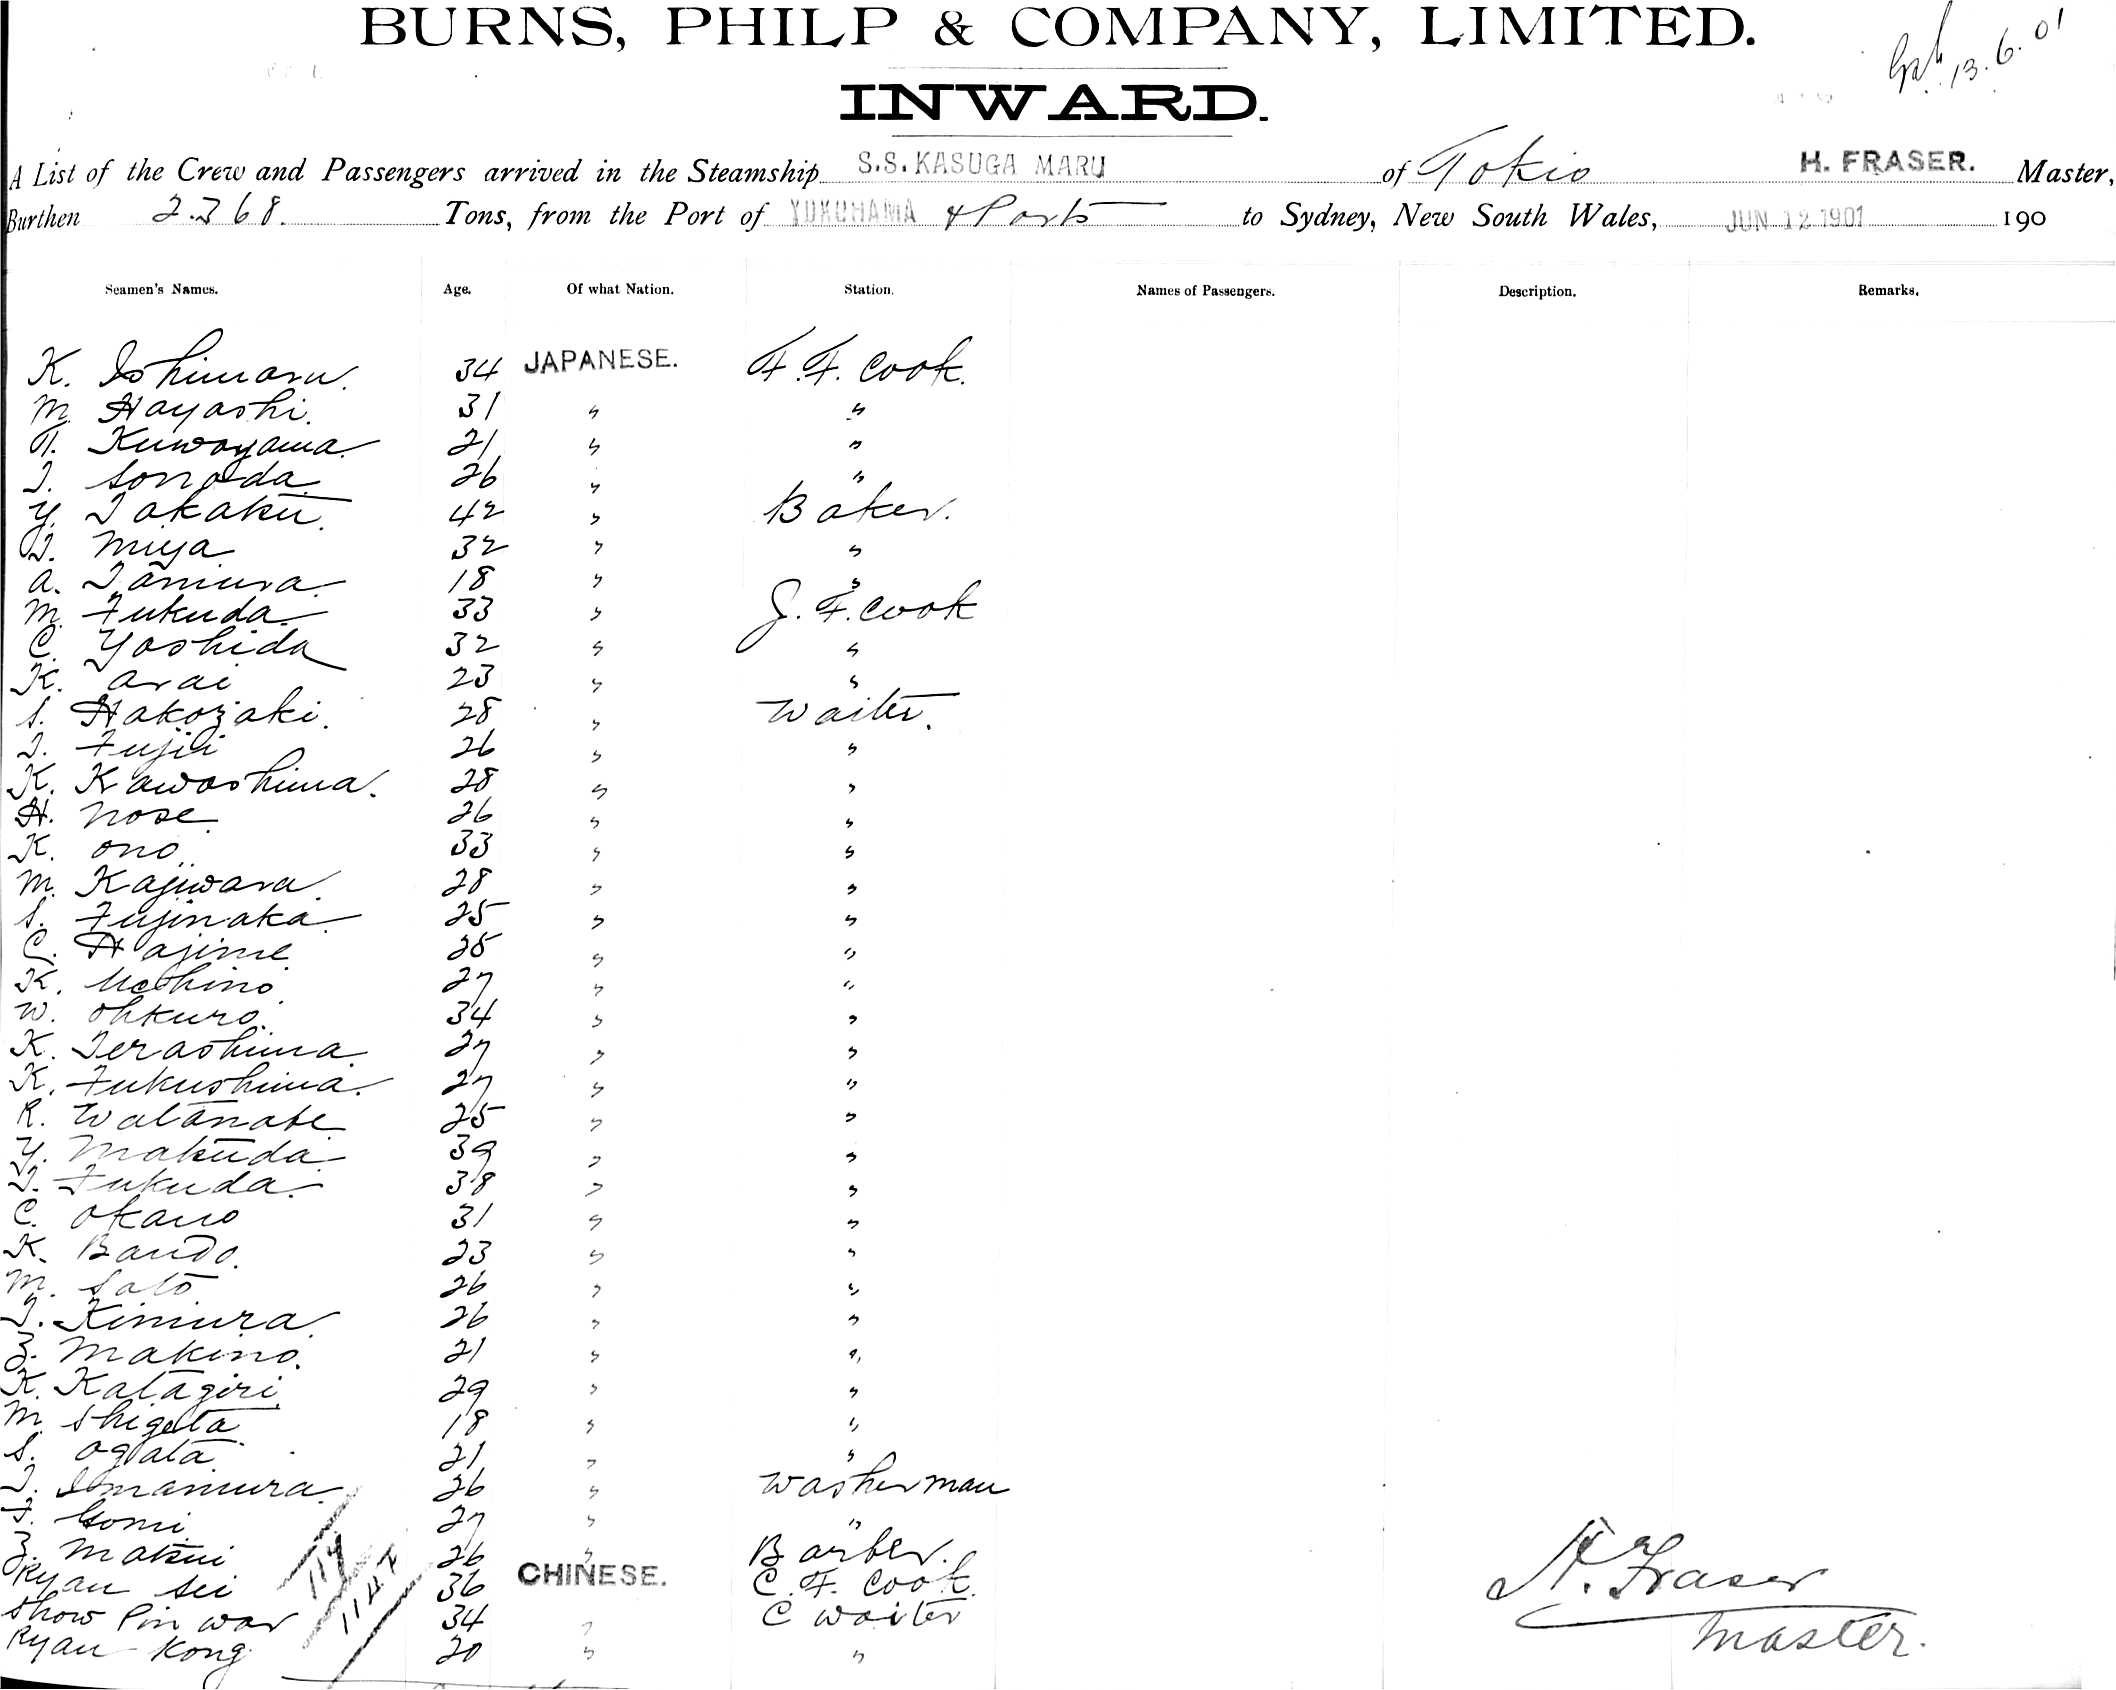 BURNS, PHILP & COMPANY, LIMITED.
13.6.01
INWARD.
A List of the Crew and Passengers arrived in the Steamship S.S. KASUGA MARU of Tokio H. FRASER. Master,
Burthen 2368. Tons, from the Port of YOKOHAMA & Ports to Sydney, New South Wales, JUN 12 1901 190
Seamen's Names. Age. Of what Nation. Station. Names of Passengers. Description. Remarks.
K. Ishimaru. 34 JAPANESE. F. F. Cook.
M. Hayashi. 31 " "
T. Kuwayama 21 " "
I. Sonoda 26 " "
Y. Takaku. 42 " Baker.
I. Miya 32 " "
A. Tamura 18 " "
M. Fukuda 33 " J. F. Cook
C. Yoshida 32 " "
K. Arai 23 " "
S. Hakozaki. 28 " Waiter.
I. Fujii 26 " "
K. Kawashima. 28 " "
H. Nose 26 " "
K. Ono 33 " "
M. Kajiwara 28 " "
S. Fujinaka 25 " "
C. Hajime 25 " "
K. 27 " "
W. Ohkuro. 34 " "
K. Terashima 27 " "
K. Fukushima 27 " "
R. Watanabe 25 " "
Y. Makuda 39 " "
I. Fukuda 38 " "
C. Okano 31 " "
K. Bando. 23 " "
M. Sato 26 " "
I. Kimura 26 " "
Z. Makino. 21 " "
K. Katagiri 29 " "
M. Shigeta 18 " "
S. Ogata 21 " "
I. Imamura 26 " Washerman
F. Gomi 27 " "
Z. Matsui 26 " Barber.
Ryan Sei 36 CHINESE. C. F. Cook.
Show Pin War 34 " C Waiter
Ryan Kong 20 " "
114
1147
H. Fraser
Master.